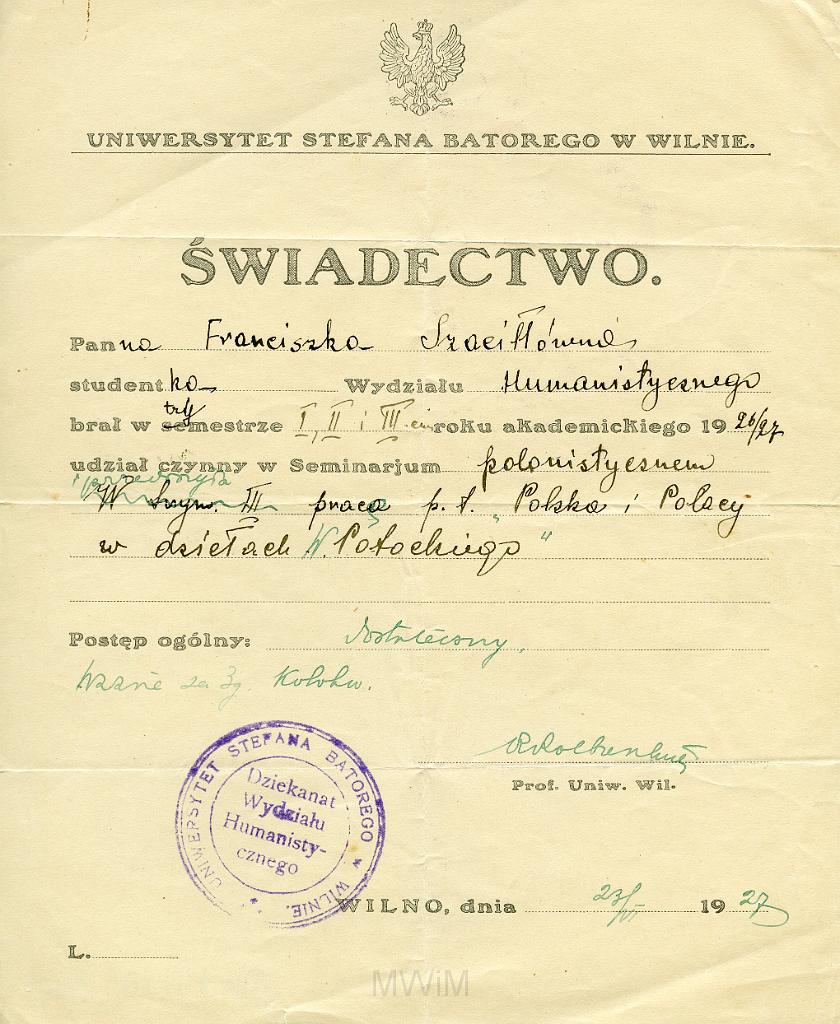 UNIWERSYTET STEFANA BATOREGO W WILNIE.
ŚWIADECTWO.
Panna Franciszka Szaciłłówna
studentka Wydziału Humanistycznego
brał w semestrze I, II i III roku akademickiego 1926/27
udział czynny w Seminarjum polonistycznem
W trym. III praca p. t. „Polska i Polacy
w dziełach W. Potockiego"
Postęp ogólny: dostateczny.
Ważne za 3g. Kolokw.
Prof. Uniw. Wil.
UNIWERSYTET STEFANA BATOREGO w WILNIE.
Dziekanat
Wydziału
Humanisty-
cznego
WILNO, dnia 23/VI 1927
L.
MWiM